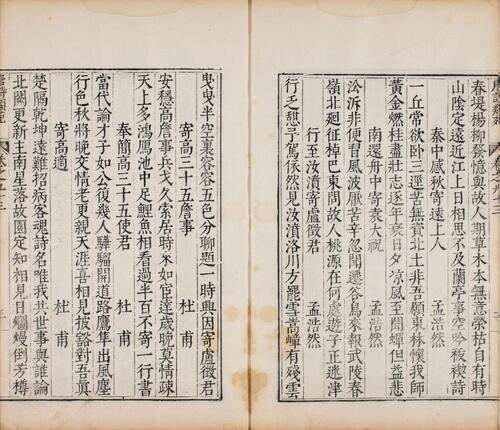 春堤楊柳發憶與故人期草木本無意榮枯自有時
山陰定遠近江上日相思不及蘭亭事空吟祓禊詩
秦中感秋寄遠上人 孟浩然
一丘常欲卧三逕苦無資北土非吾願東林懷我師
黃金燃桂盡壯志逐年衰日夕凉風至聞蟬但益悲
南還舟中寄袁太祝 孟浩然
沿泝非便習風波厭苦辛忽聞遷谷鳥來報武陵春
嶺北迴征棹巴東問故人桃源在何處遊子正迷津
行至汝濆寄盧徵君 孟浩然
行乏憩予駕依然見汝濆洛川方罷雪嵩嶂有殘雲
曳曳半空裏容容五色分聊題一時興因寄盧徵君
寄高三十五詹事 杜甫
安穩高詹事兵戈久索居時來如官達歲晚莫情疎
天上多鴻鴈池中足鯉魚相看過半百不寄一行書
奉簡高三十五使君 杜甫
當代論才子如公復幾人驊騮開道路鷹隼出風塵
行色秋將晚交情老更親天涯喜相見披豁對吾真
寄高適 杜甫
楚隔乾坤遠難招病客魂詩名唯我共世事與誰論
北闕更新主南星落故園定知相見日爛熳倒芳樽